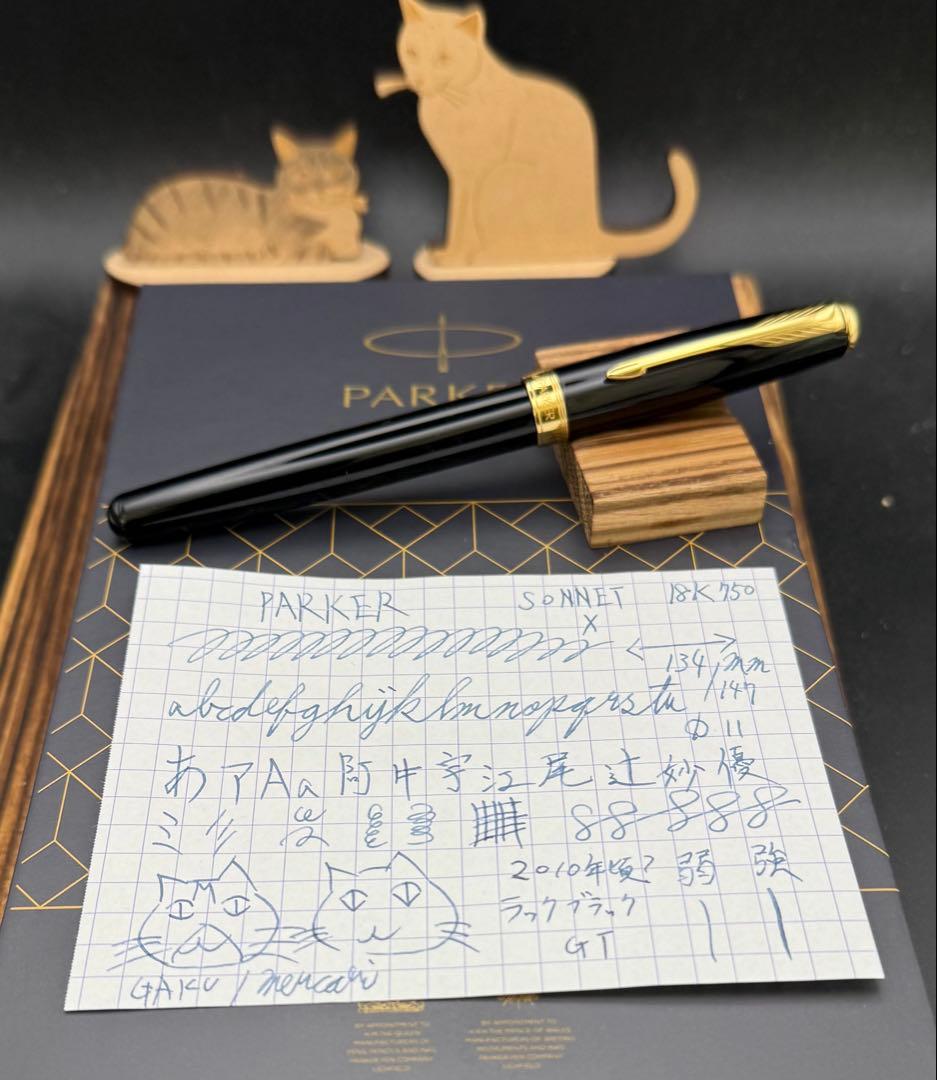 PARKER
PARKER
PARKER SONNET 18K 750
X
134/mm
/147
Φ 11
abcdefghijklmnopqrstu
あ ア A a 阿 井 宇 江 尾 辻 妙 優
2010年頃? 弱 強
ラックブラック
GT
GAKU / mercari
BY APPOINTMENT TO